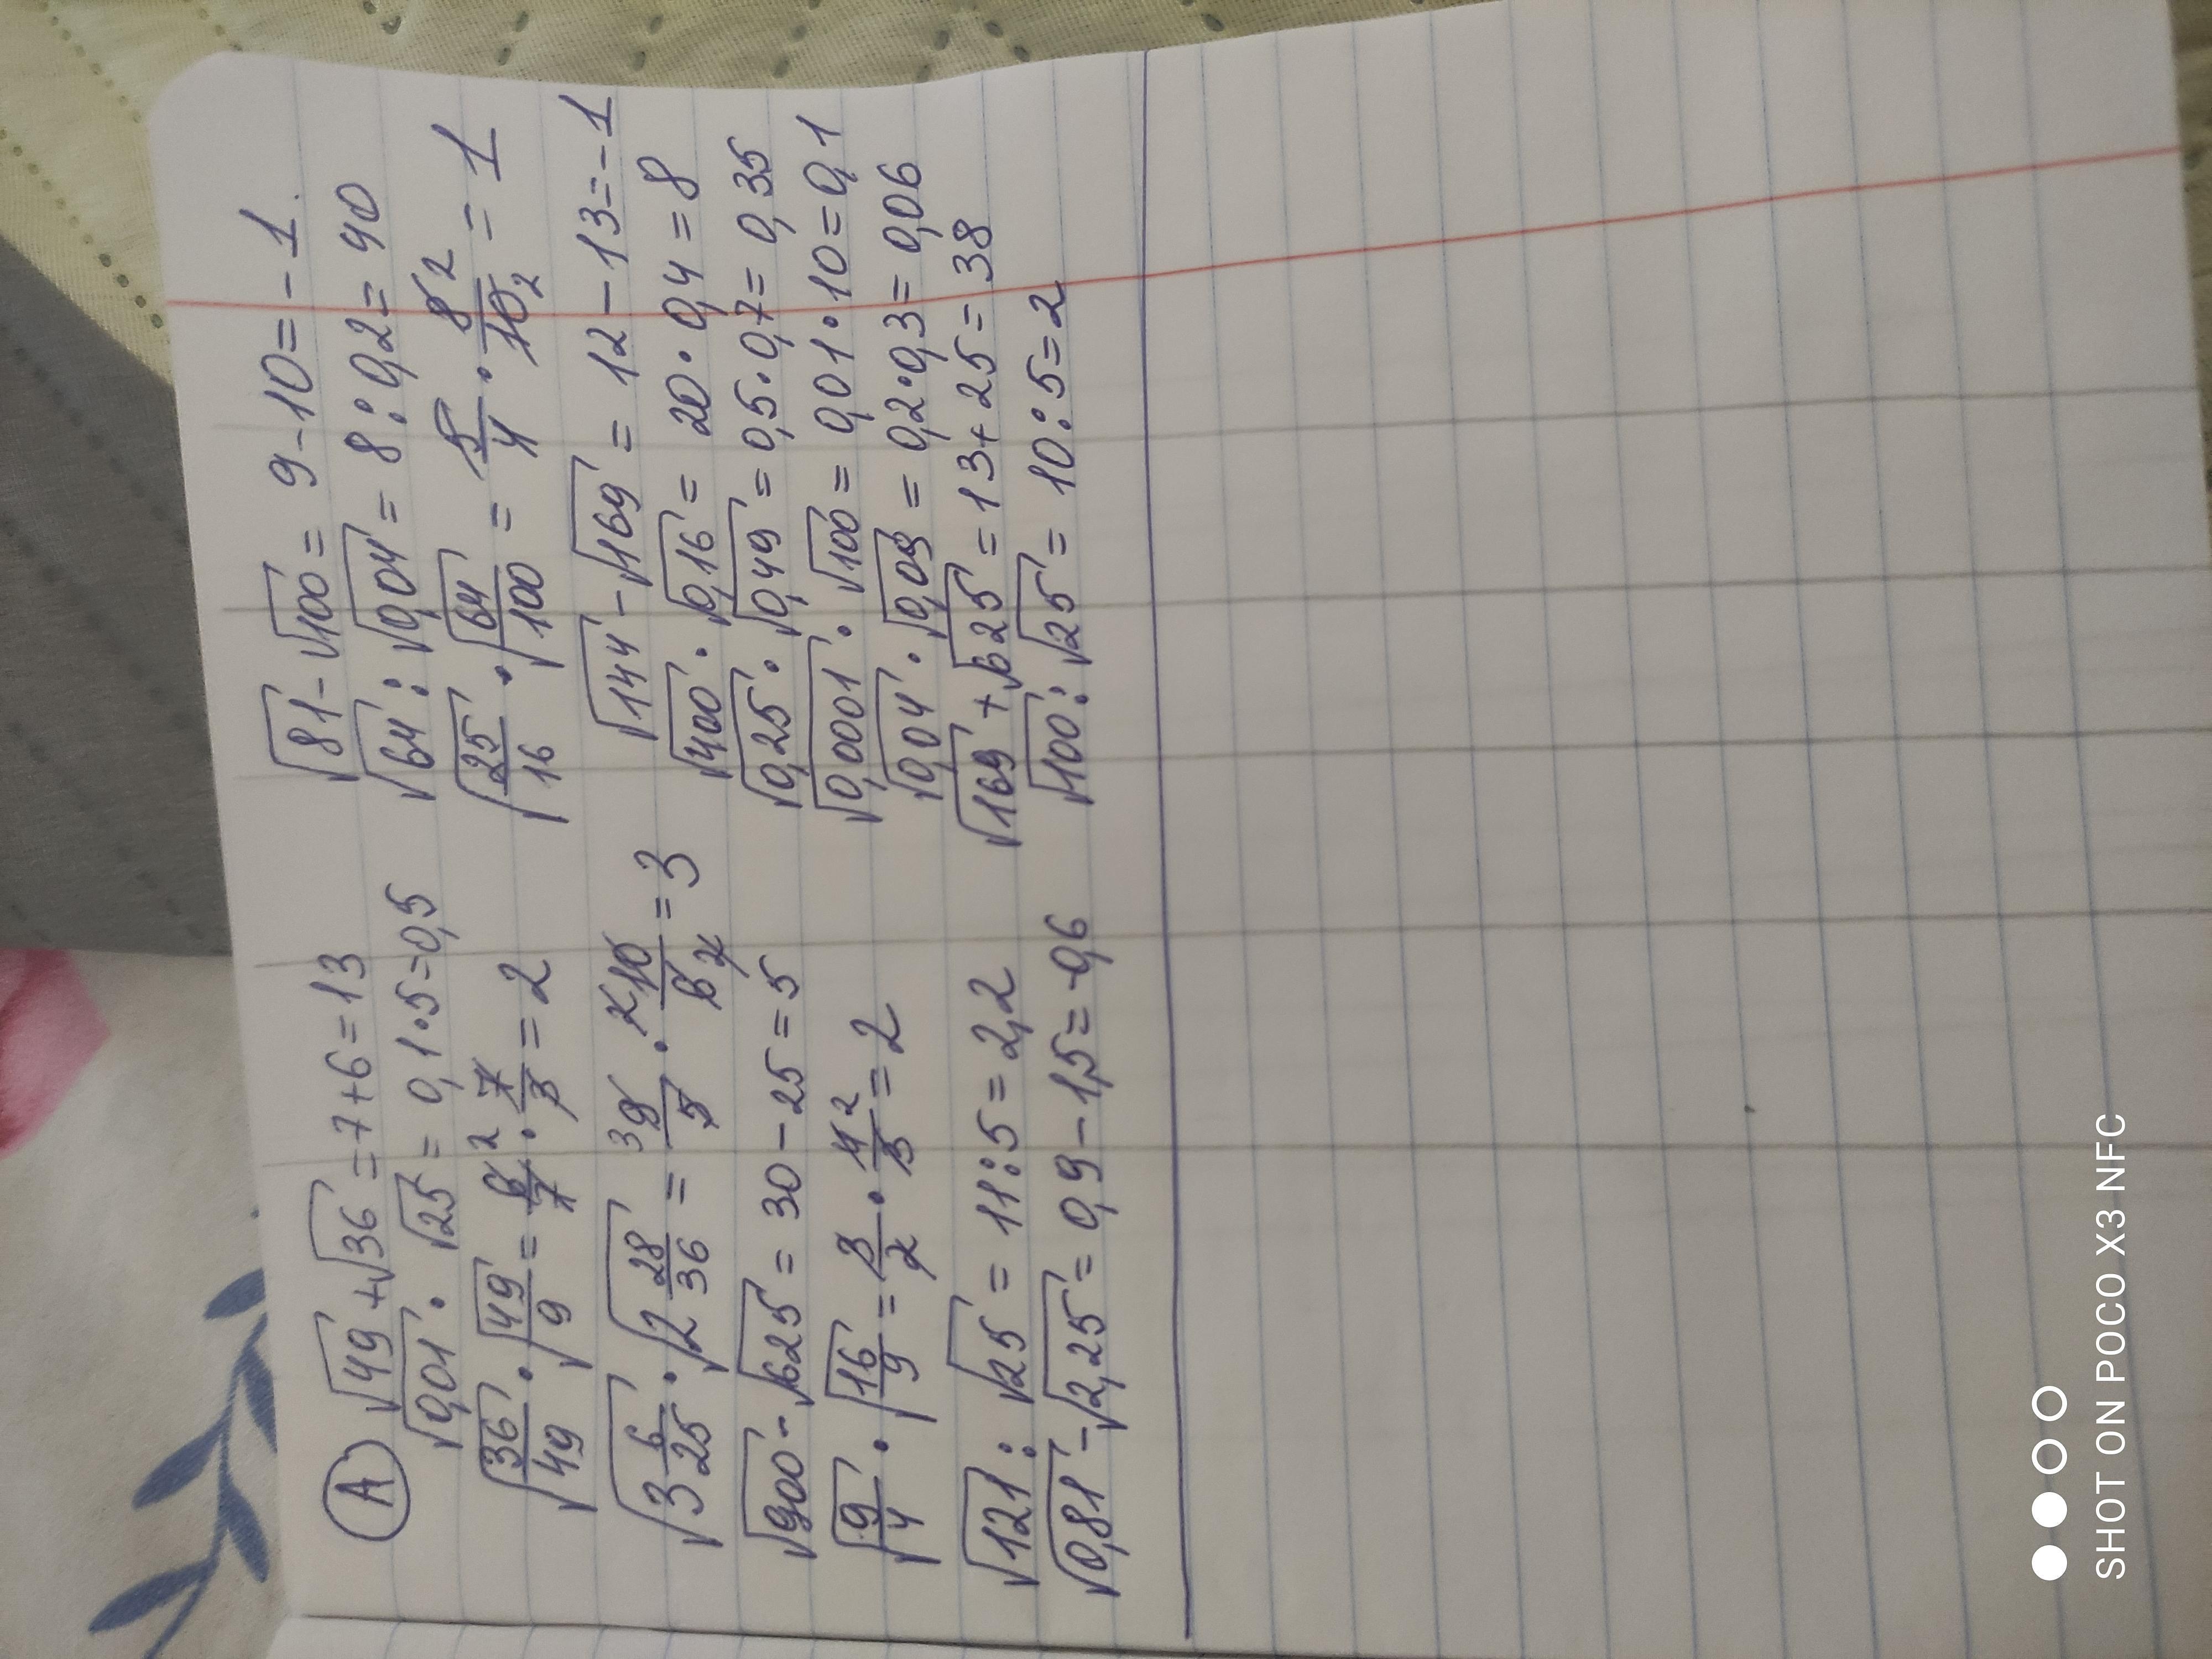 (A) √49 + √36 = 7 + 6 = 13
√0,01 · √25 = 0,1 · 5 = 0,5
√(36/49) · √(49/9) = 6/7 · 7/3 = 2
√(3 6/25) · √(2 28/36) = 9/5 · 10/6 = 3
√900 - √625 = 30 - 25 = 5
√(9/4) · √(16/9) = 3/2 · 4/3 = 2
√121 : √25 = 11 : 5 = 2,2
√0,81 - √2,25 = 0,9 - 1,5 = -0,6
√81 - √100 = 9 - 10 = -1.
√64 : √0,04 = 8 : 0,2 = 40
√(25/16) · √(64/100) = 5/4 · 8/10 = 1
√144 - √169 = 12 - 13 = -1
√400 · √0,16 = 20 · 0,4 = 8
√0,25 · √0,49 = 0,5 · 0,7 = 0,35
√0,0001 · √100 = 0,01 · 10 = 0,1
√0,04 · √0,09 = 0,2 · 0,3 = 0,06
√169 + √625 = 13 + 25 = 38
√100 : √25 = 10 : 5 = 2
SHOT ON POCO X3 NFC